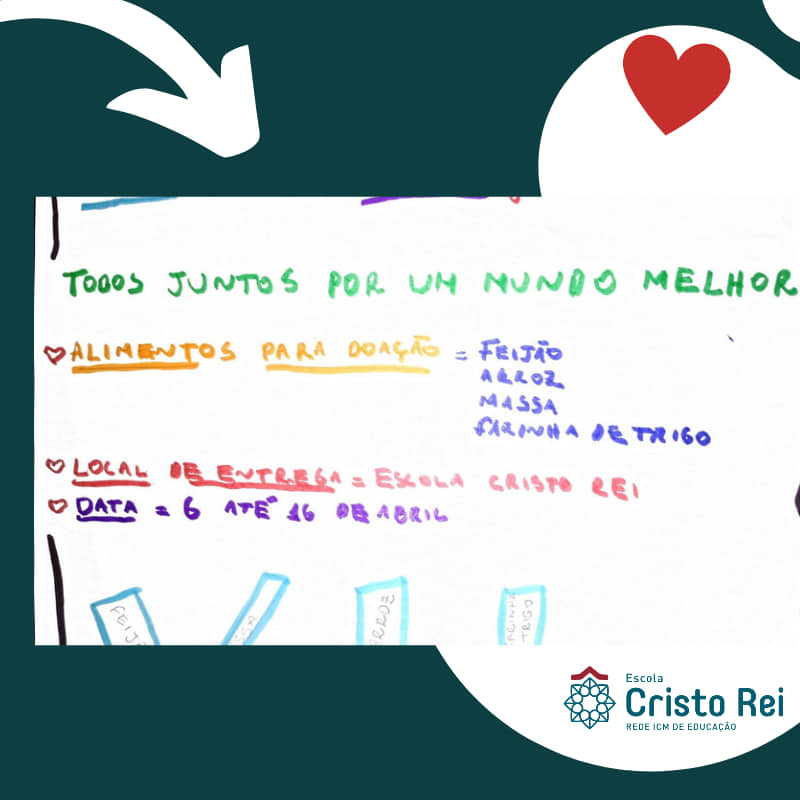 TODOS JUNTOS POR UM MUNDO MELHOR
ALIMENTOS PARA DOAÇÃO = FEIJÃO
ARROZ
MASSA
FARINHA DE TRIGO
LOCAL DE ENTREGA = ESCOLA CRISTO REI
DATA = 6 ATÉ 16 DE ABRIL
FEIJ
ARROZ
TRIGO
Escola
Cristo Rei
REDE ICM DE EDUCAÇÃO